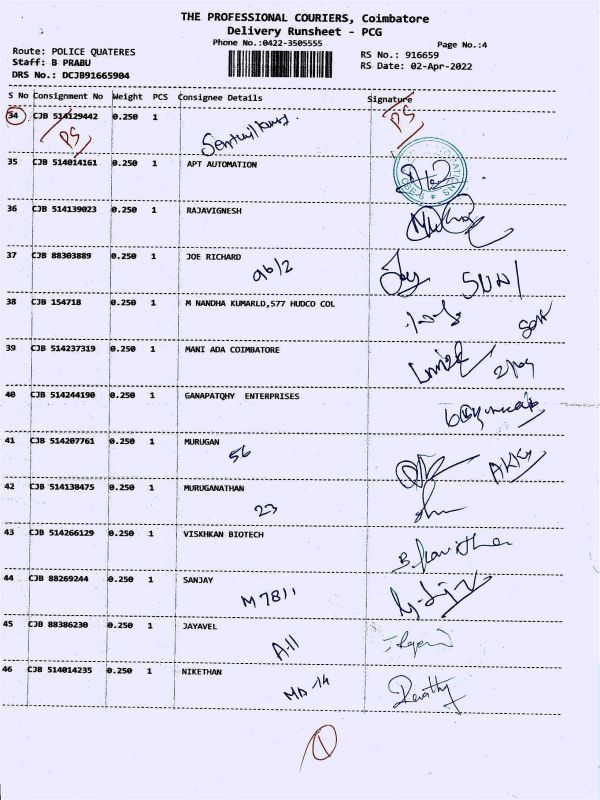 THE PROFESSIONAL COURIERS, Coimbatore
Delivery Runsheet - PCG
Phone No.:0422-3505555
Page No.:4
Route: POLICE QUATERES
Staff: B PRABU
DRS No.: DCJB91665904
RS No.: 916659
RS Date: 02-Apr-2022
S No Consignment No Weight PCS Consignee Details Signature
34 CJB 514129442 0.250 1
PS PS
35 CJB 514014161 0.250 1 APT AUTOMATION
36 CJB 514139023 0.250 1 RAJAVIGNESH
37 CJB 88303889 0.250 1 JOE RICHARD
ab/2 Joy
38 CJB 154718 0.250 1 M NANDHA KUMARLO,577 HUDCO COL
39 CJB 514237319 0.250 1 MANI ADA COIMBATORE
40 CJB 514244190 0.250 1 GANAPATQHY ENTERPRISES
41 CJB 514207761 0.250 1 MURUGAN
56
42 CJB 514138475 0.250 1 MURUGANATHAN
23
43 CJB 514266129 0.250 1 VISKHKAN BIOTECH
44 CJB 88269244 0.250 1 SANJAY
M7811
45 CJB 88386230 0.250 1 JAYAVEL
A11
46 CJB 514014235 0.250 1 NIKETHAN
MA-14 Revathy
1